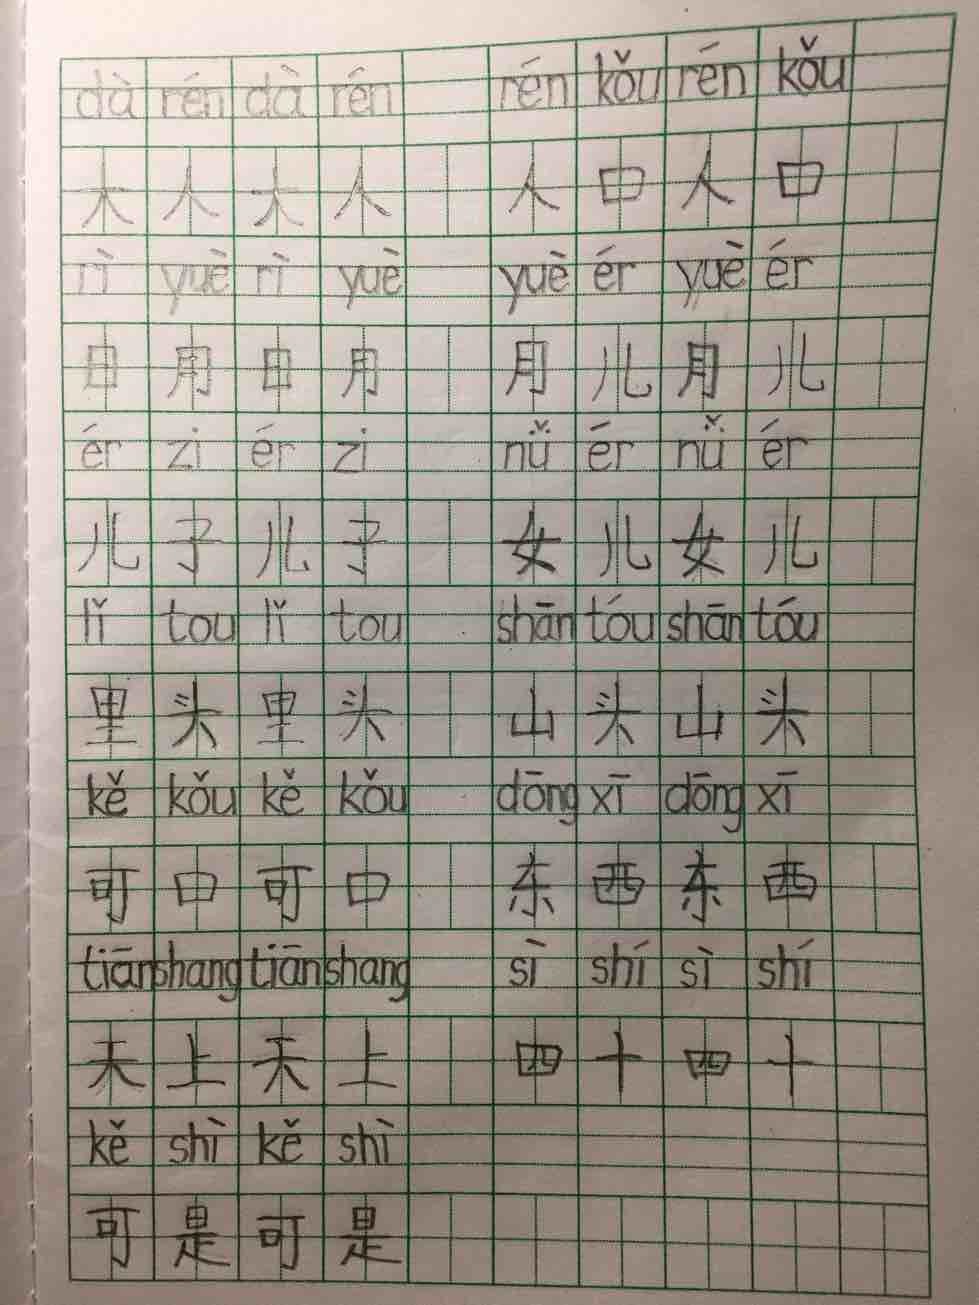 dà rén dà rén rén kǒu rén kǒu
大人大人 人口人口
rì yuè rì yuè yuè ér yuè ér
日月日月 月儿月儿
ér zi ér zi nǚ ér nǚ ér
儿子儿子 女儿女儿
lǐ tou lǐ tou shān tóu shān tóu
里头里头 山头山头
kě kǒu kě kǒu dōng xī dōng xī
可口可口 东西东西
tiān shang tiān shang sì shí sì shí
天上天上 四十四十
kě shì kě shì
可是可是